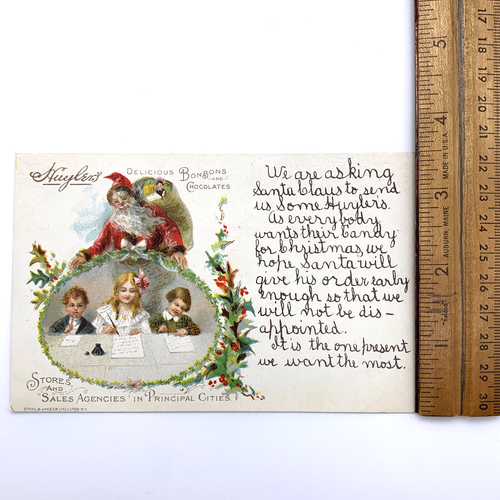 Huyler's
DELICIOUS BONBONS
AND
CHOCOLATES
We are asking
Santa Claus to send
us some Huyler's.
As everybody
wants their candy
for Christmas, we
hope Santa will
give his order early
enough so that we
will not be dis-
appointed.
It is the one present
we want the most.
STORES
AND
SALES AGENCIES IN PRINCIPAL CITIES
5
4
3
2
1
MADE IN U.S.A.
AUBURN, MAINE
17
18
19
20
21
22
23
24
25
26
27
28
29
30